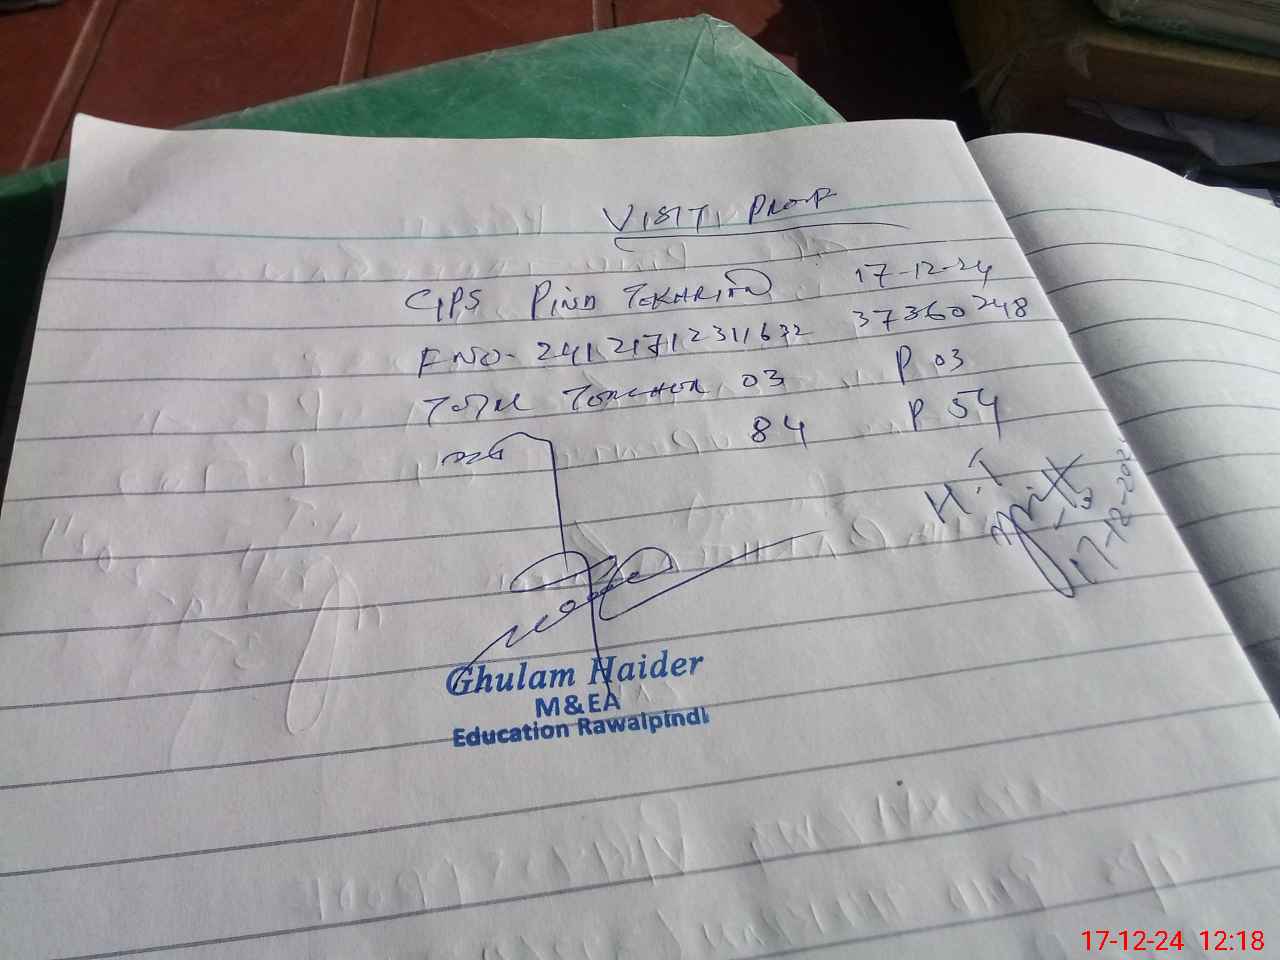 VISIT PROOF
GPS PIND TAKHRIAN 17-12-24
F NO- 24121712311632 37360248
TOTAL TEACHER 03 P 03
84 P 54
H.T
17-12-202
Ghulam Haider
M&EA
Education Rawalpindi
17-12-24 12:18